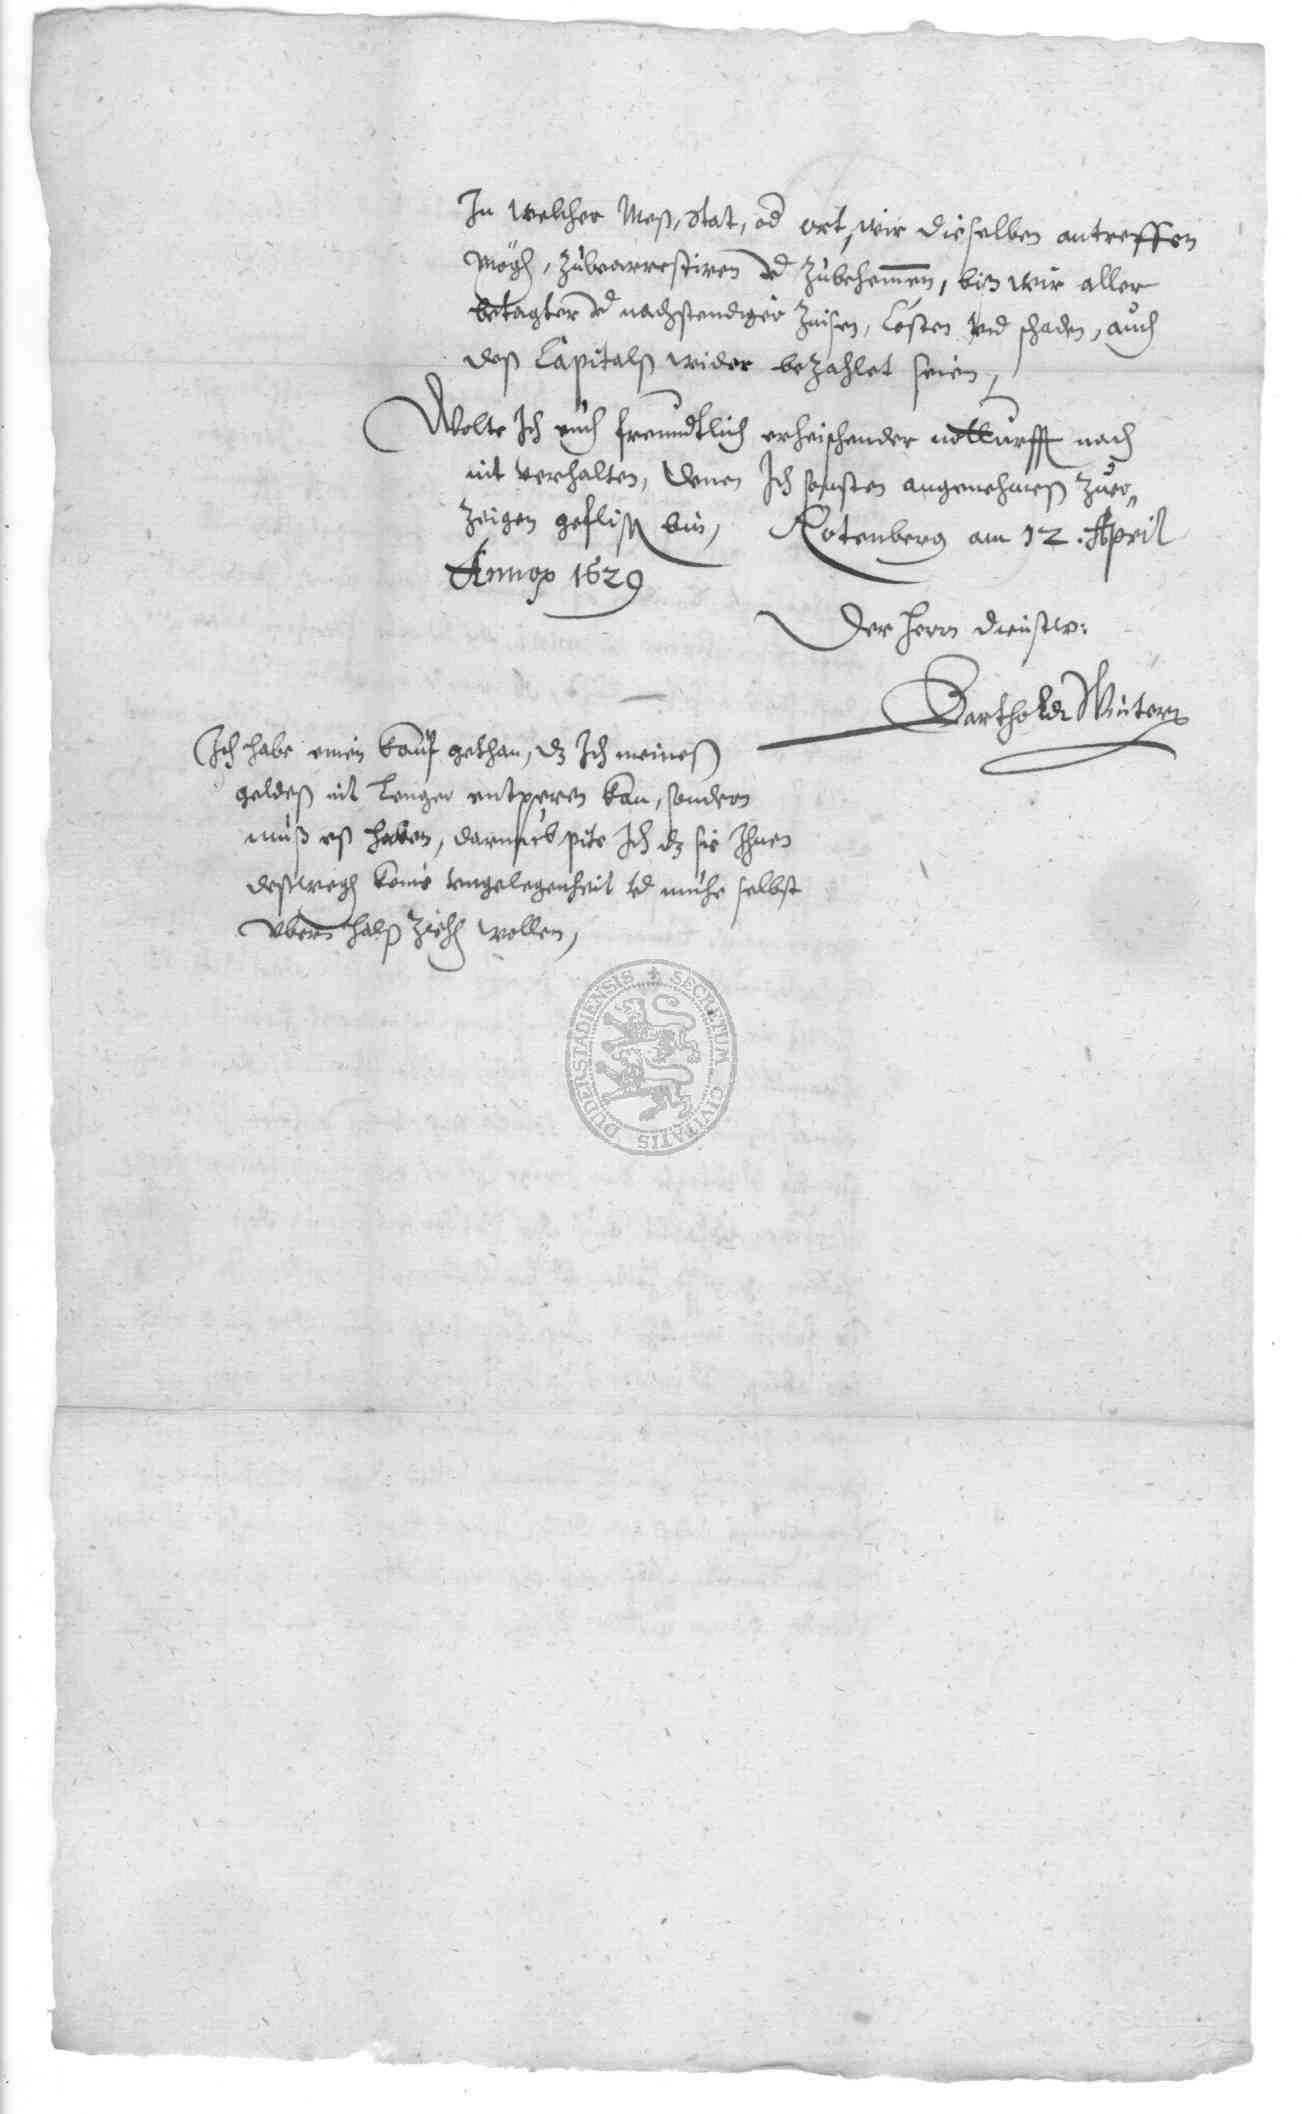 In welcher Meß, Stat, od ort, wir dieselben antreffen
mögh, zubearrestiren vd zubehemmen, biß wir aller
betagter vd nachstendiger Zinsen, Costen vnd schaden, auch
deß Capitalß wider bezahlet seien,
Wolte Ich euch freundtlich erheischender notturfft nach
nit verhalten, denen Ich sonsten angenehmeß zuer„
zeigen gefliß bin, Rotenberg am 12. April
Anno 1629
Der herrn dienstw:
Barthold Wintern
Ich habe einen Kauf gethan, dz Ich meineß
geldeß nit lenger entperen kan, sondern
muß eß haben, darumb pitt Ich dz sie Ihnen
deßwegh keine vngelegenheit vd muhe selbst
vbern halß ziehh wollen,
SECRETUM CIVITATIS DUDERSTADIENSIS